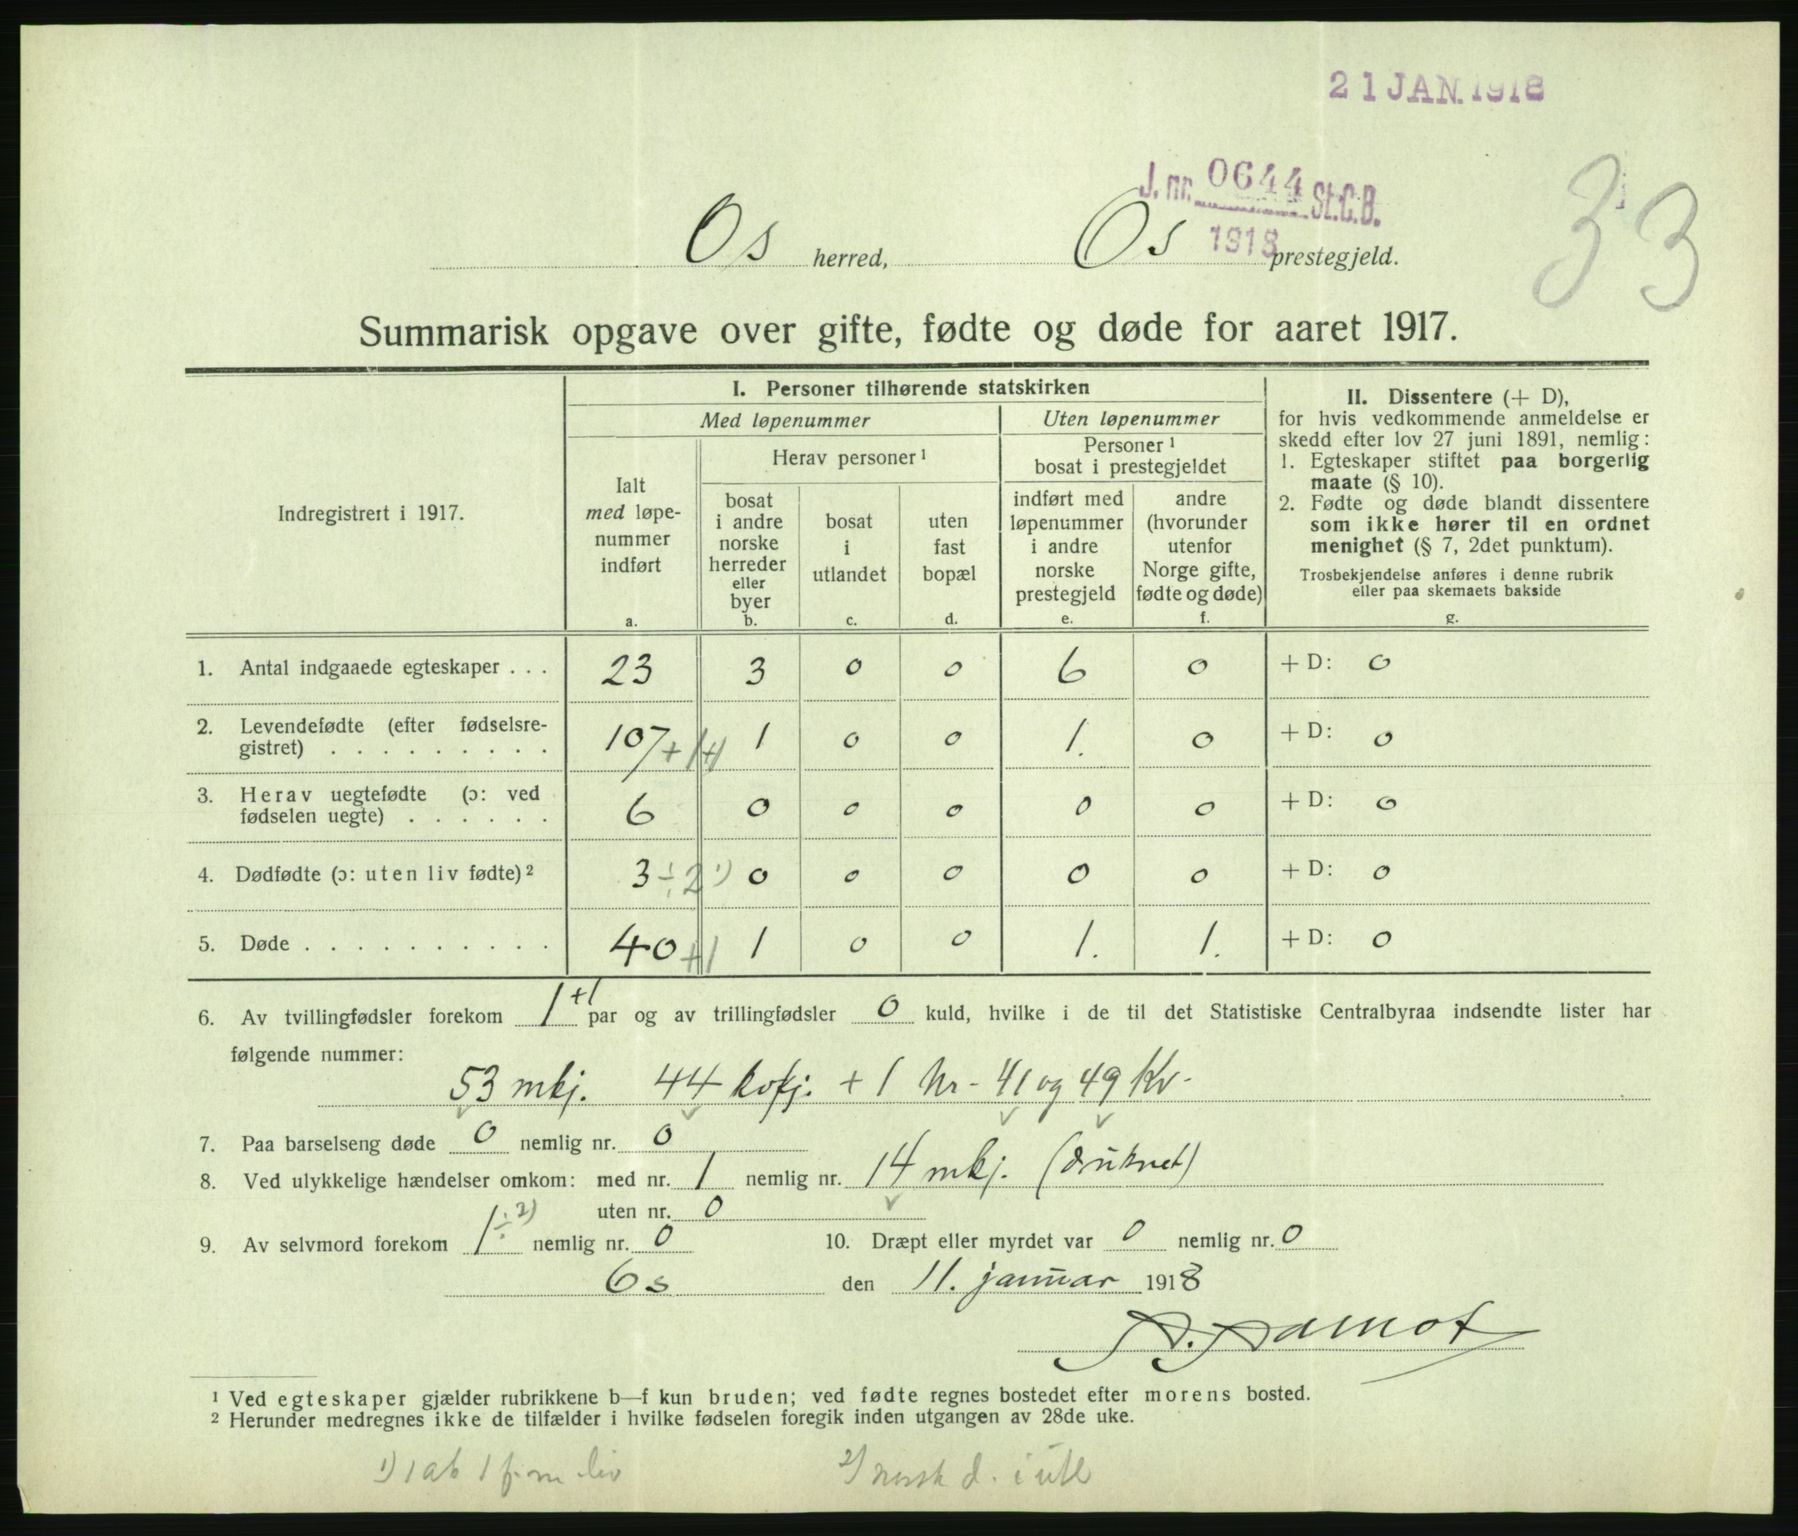 21 JAN. 1918
J. nr. 0644 St.C.B.
1918
33
Os herred, Os prestegjeld.
Summarisk opgave over gifte, fødte og døde for aaret 1917.
Indregistrert i 1917.
I. Personer tilhørende statskirken
Med løpenummer
Uten løpenummer
Ialt
med løpe-
nummer
indført
a.
Herav personer ¹
bosat
i andre
norske
herreder
eller
byer
b.
bosat
i
utlandet
c.
uten
fast
bopæl
d.
Personer ¹
bosat i prestegjeldet
indført med
løpenummer
i andre
norske
prestegjeld
e.
andre
(hvorunder
utenfor
Norge gifte,
fødte og døde)
f.
II. Dissentere (+ D),
for hvis vedkommende anmeldelse er
skedd efter lov 27 juni 1891, nemlig:
1. Egteskaper stiftet paa borgerlig
maate (§ 10).
2. Fødte og døde blandt dissentere
som ikke hører til en ordnet
menighet (§ 7, 2det punktum).
Trosbekjendelse anføres i denne rubrik
eller paa skemaets bakside
g.
1. Antal indgaaede egteskaper . . . 23 3 0 0 6 0 + D: 0
2. Levendefødte (efter fødselsre-
gistret) . . . . . . . . . 107 +1 +1 1 0 0 1. 0 + D: 0
3. Herav uegtefødte (ɔ: ved
fødselen uegte) . . . . . . 6 0 0 0 0 0 + D: 0
4. Dødfødte (ɔ: uten liv fødte) ² 3 ÷2 ¹) 0 0 0 0 0 + D: 0
5. Døde . . . . . . . . . . 40 +1 1 0 0 1. 1. + D: 0
6. Av tvillingfødsler forekom 1 +1 par og av trillingfødsler 0 kuld, hvilke i de til det Statistiske Centralbyraa indsendte lister har
følgende nummer:
53 mkj. 44 kvkj. + 1 Nr - 41 og 49 Kv -
7. Paa barselseng døde 0 nemlig nr. 0
8. Ved ulykkelige hændelser omkom: med nr. 1 nemlig nr. 14 mkj. (druknet)
uten nr. 0
9. Av selvmord forekom 1 ÷ ²) nemlig nr. 0 10. Dræpt eller myrdet var 0 nemlig nr. 0
Os den 11. januar 1918
¹ Ved egteskaper gjælder rubrikkene b—f kun bruden; ved fødte regnes bostedet efter morens bosted.
² Herunder medregnes ikke de tilfælder i hvilke fødselen foregik inden utgangen av 28de uke.
²) norsk d. i utl